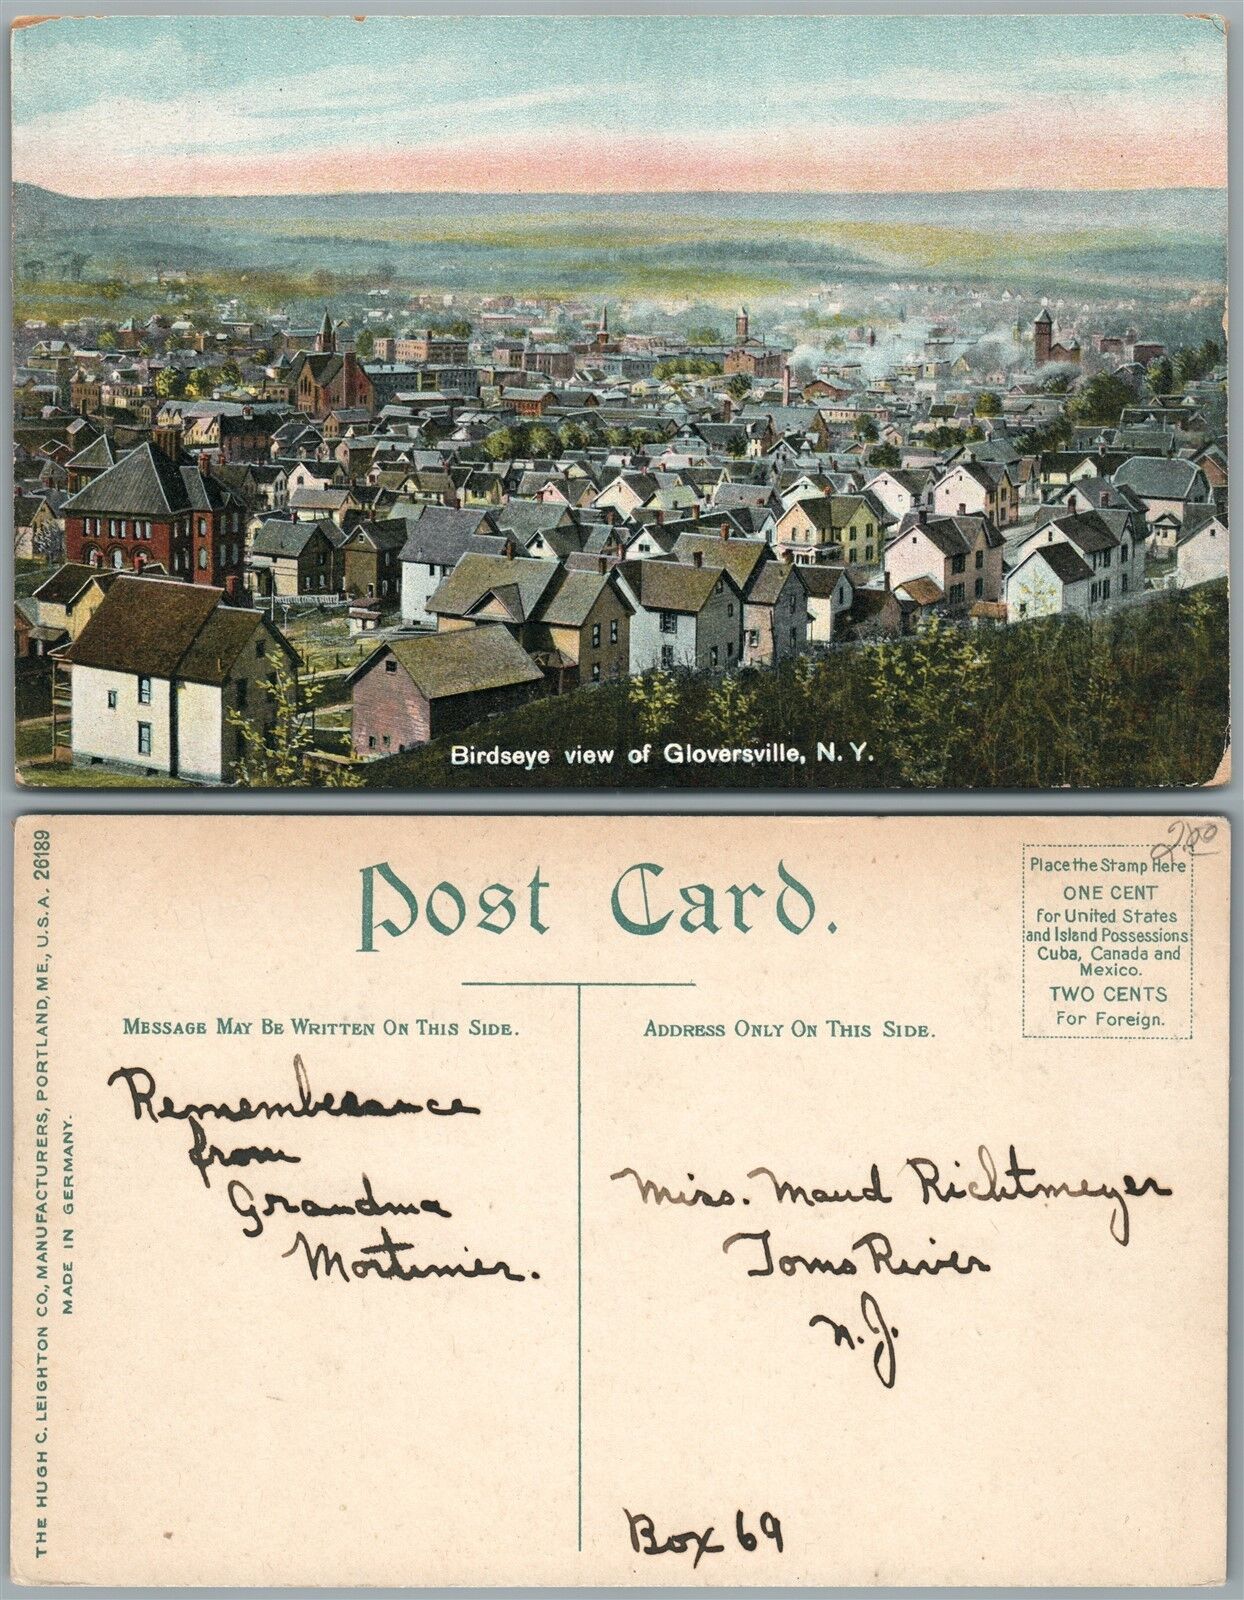 Birdseye view of Gloversville, N.Y.
THE HUGH C. LEIGHTON CO., MANUFACTURERS, PORTLAND, ME., U.S.A. 26189
MADE IN GERMANY.
Post Card.
2.00
Place the Stamp Here
ONE CENT
For United States
and Island Possessions
Cuba, Canada and
Mexico.
TWO CENTS
For Foreign.
MESSAGE MAY BE WRITTEN ON THIS SIDE.
Rememberance
from
Grandma
Mortimer.
ADDRESS ONLY ON THIS SIDE.
Miss. Maud Richtmeyer
Toms River
N.J.
Box 69